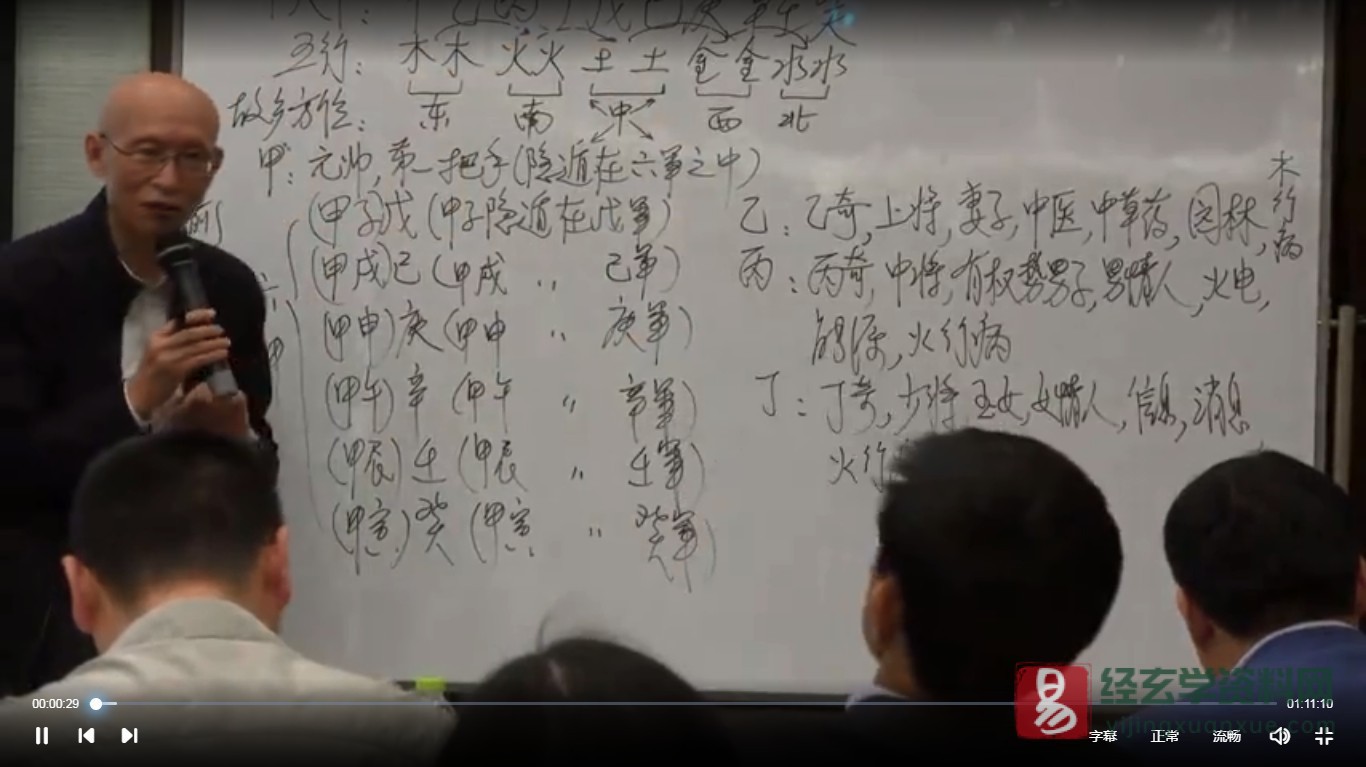 十天干：甲乙丙丁戊己庚辛壬癸
五行：木木 火火 土土 金金 水水
故乡方位：东 南 中 西 北
甲：元帅，第一把手(隐遁在六军之中)
(甲子)戊(甲子隐遁在戊军)
(甲戌)己(甲戌 〃 己军)
(甲申)庚(甲申 〃 庚军)
(甲午)辛(甲午 〃 辛军)
(甲辰)壬(甲辰 〃 壬军)
(甲寅)癸(甲寅 〃 癸军)
六甲
乙：乙奇，上将，妻子，中医，中草药，园林，木行病
丙：丙奇，中将，有权势男子，男情人，火电，
火行病
丁：丁奇，少将，玉女，女情人，信息，消息
火行
00:00:29
01:11:10
字幕 正常 流畅
易
经玄学资料网
yijingxuanxue.com